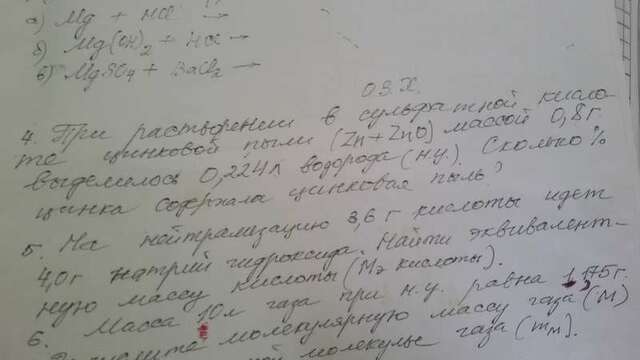 а) Mg + HCl →
б) Mg(OH)₂ + HCl →
в) MgSO₄ + BaCl₂ →
О.З.Х.
4. При растворении в сульфатной кисло-
те цинковой пыли (Zn + ZnO) массой 0,8 г.
выделилось 0,224 л водорода (н.у.). Сколько %
цинка содержала цинковая пыль?
5. На нейтрализацию 3,6 г кислоты идет
4,0 г. натрий гидроксида. Найти эквивалент-
ную массу кислоты (Мэ кислоты).
6. Масса 10 л газа при н.у. равна 1,175 г.
молекулярную массу газа (М)
молекулы газа (mм).